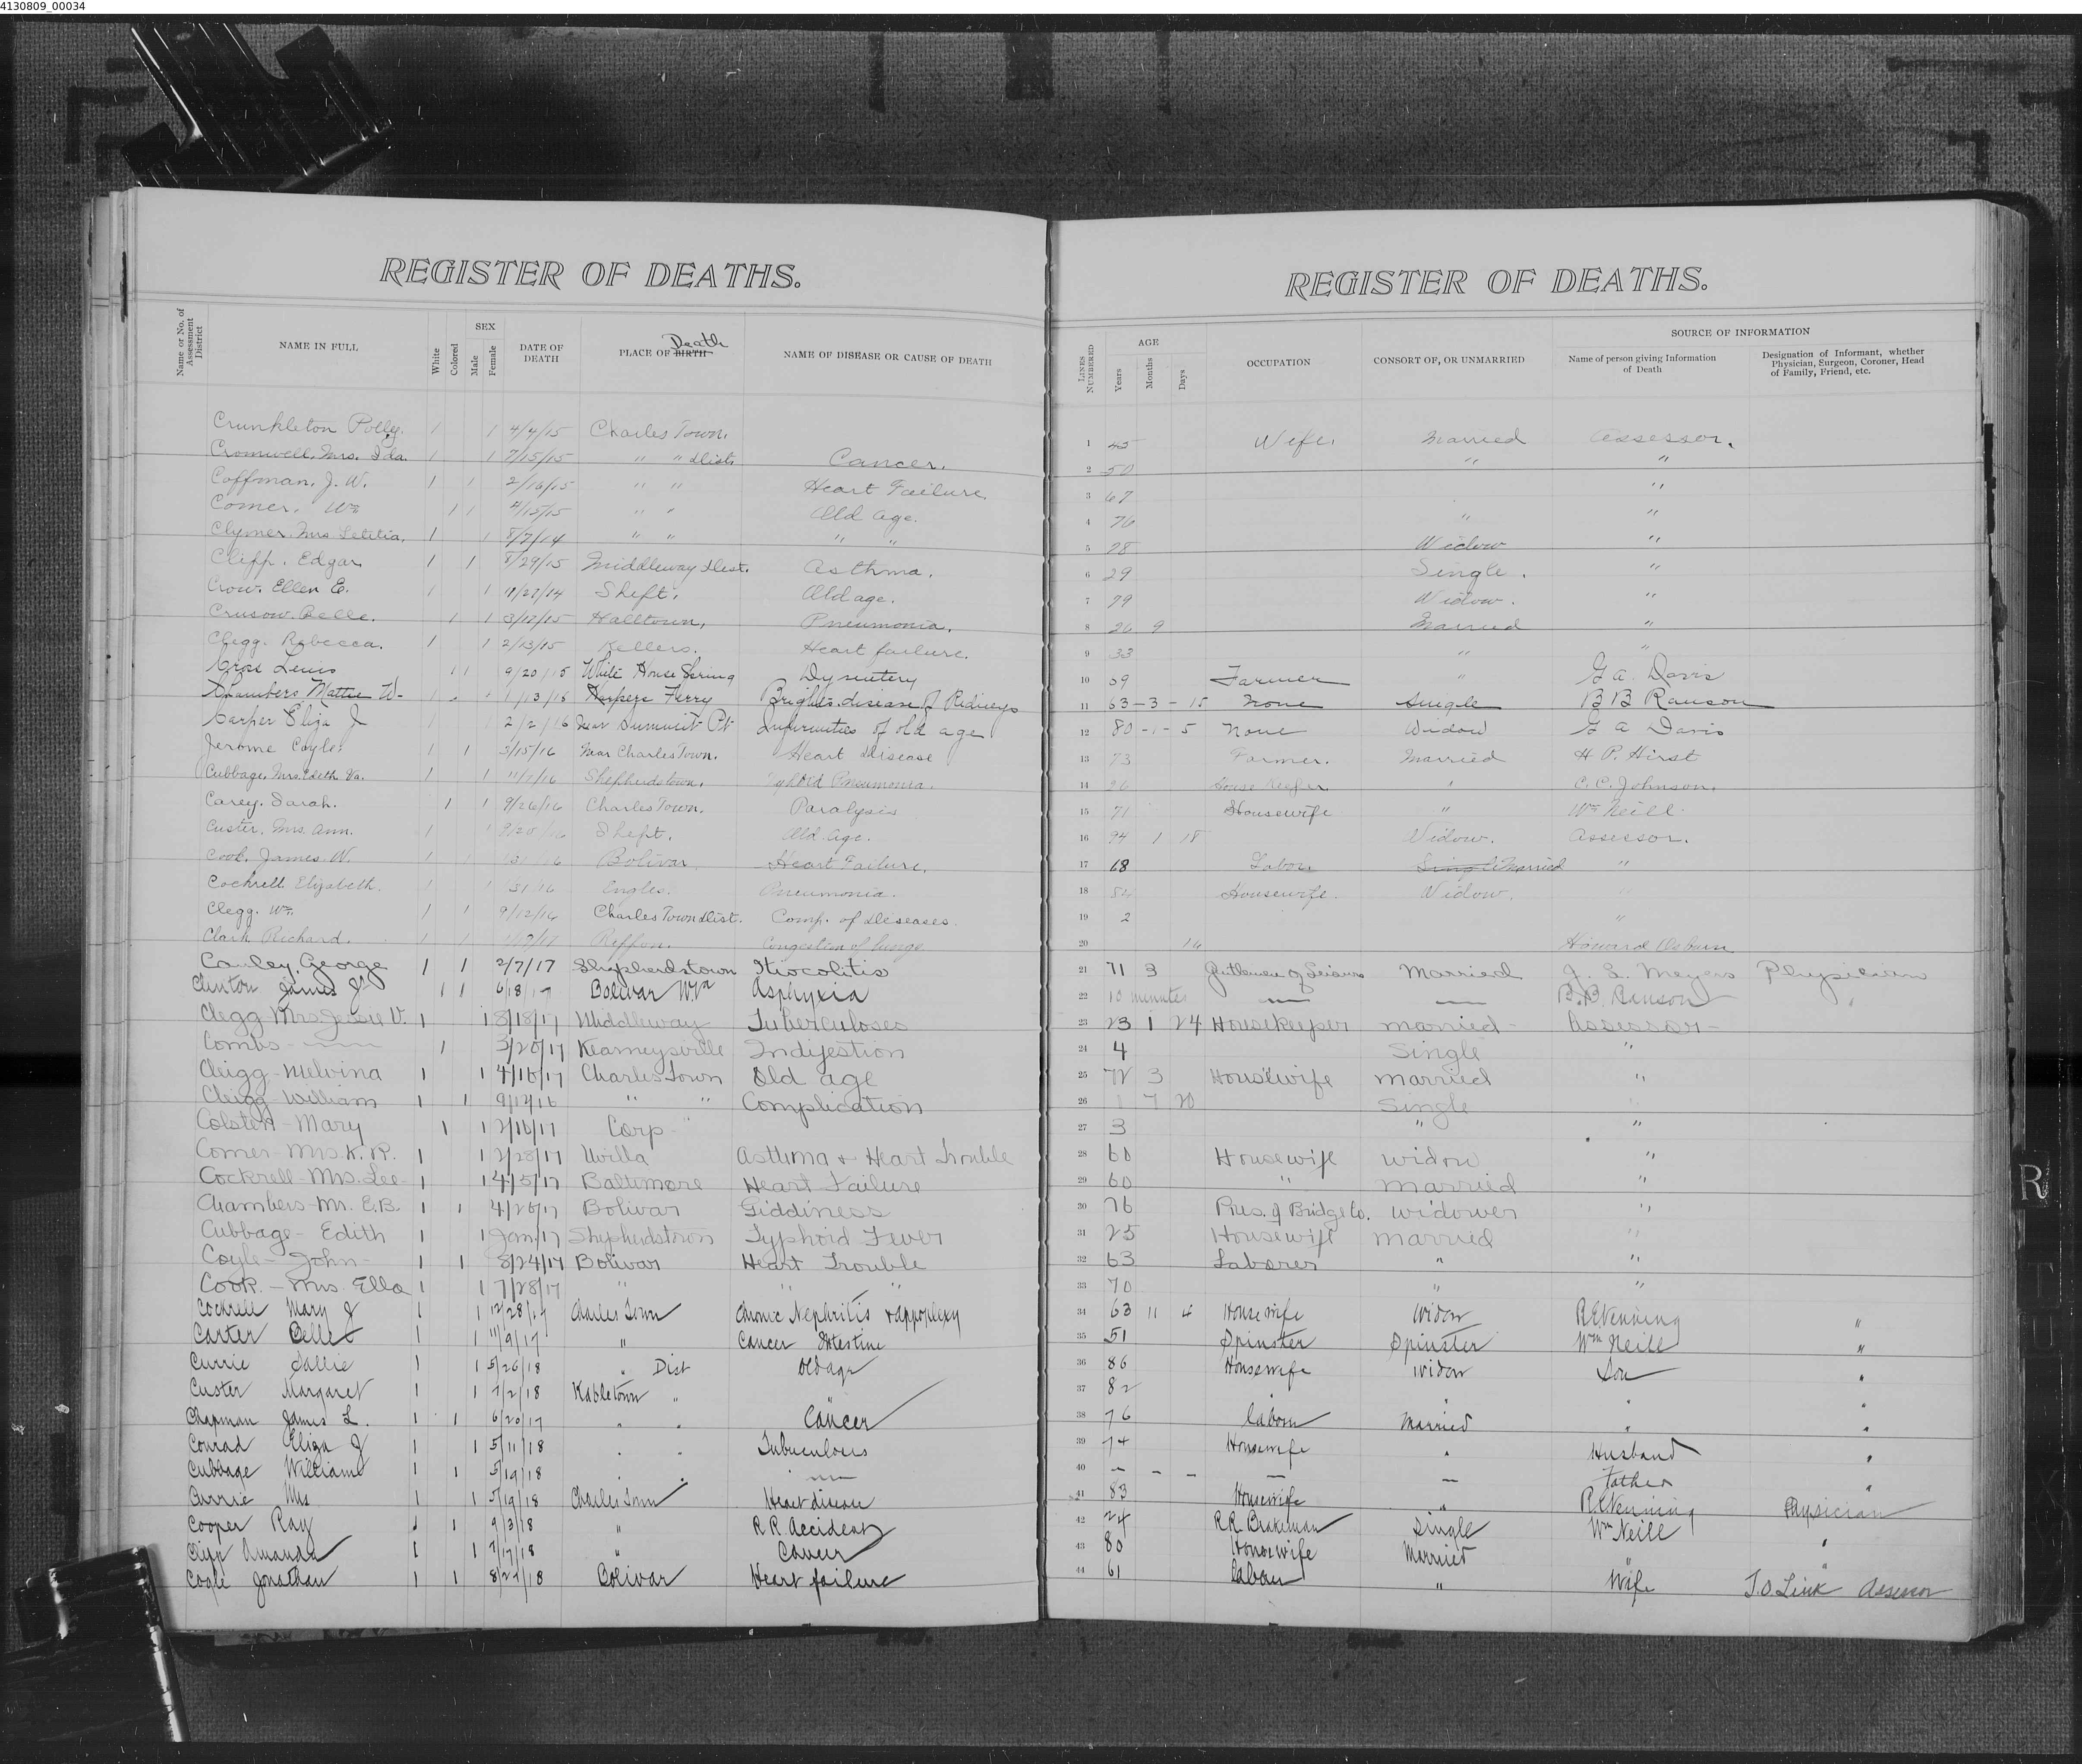 4130809_00034
REGISTER OF DEATHS.
Name or No. of Assessment District
NAME IN FULL
White
Colored
SEX
Male
Female
DATE OF DEATH
PLACE OF BIRTH Death
NAME OF DISEASE OR CAUSE OF DEATH
Crunkleton Polly. 1 1 4/4/15 Charles Town.
Cromwell, Mrs. Ida. 1 1 7/15/15 " " Dist. Cancer.
Coffman, J. W. 1 1 2/16/15 " " Heart Failure.
Comer, Wm 1 1 4/15/15 " " Old Age.
Clymer, Mrs Letitia. 1 1 8/7/14 " " " "
Clipp, Edgar 1 1 8/29/15 Middleway Dist. Asthma.
Crow, Ellen E. 1 1 11/27/14 Shept. Old age.
Crusow, Belle. 1 1 3/12/15 Halltown, Pneumonia.
Clegg, Rebecca. 1 1 2/13/15 Kellers. Heart failure.
Lewis 1 1 9/20/15 White House Spring Dysintery
Chambers Mattie W- 1 1 1/13/16 Harpers Ferry Brights disease of Kidneys
Carper Eliza J 1 1 2/2/16 Near Summit Pt Infirmities of old age
Jerome Coyle 1 1 3/15/16 Near Charles Town. Heart Disease
Cubbage, Mrs. Edith Va. 1 1 11/7/16 Shepherdstown. Typhoid Pneumonia.
Carey, Sarah. 1 1 9/26/16 Charles Town. Paralysis
Custer, Mrs. Ann. 1 1 9/20/16 Shept. Old Age.
Cook, James W. 1 1 /31/16 Bolivar Heart Failure.
Cockrell Elizabeth. 1 1 /31/16 Engles. Pneumonia.
Clegg, Wm. 1 1 9/12/16 Charles Town Dist. Comp. of Diseases.
Clark Richard. 1 1 Rippon. Congestion of lungs
Conley, George 1 1 2/7/17 Shepherdstown Iliocolitis
Clinton James Jr 1 1 6/18/17 Bolivar WVa Asphyxia
Clegg Mrs Jessie V. 1 1 8/18/17 Middleway Tuberculoses
Combs - 1 3/20/17 Kearneysville Indijestion
Cleigg - Melvina 1 1 4/16/17 Charles Town Old age
Cleigg - William 1 1 9/12/16 " " Complication
Colsten - Mary 1 1 2/16/17 Corp "
Comer - Mrs. K. R. 1 1 2/28/17 Uvilla Asthma & Heart Trouble
Cockrell - Mrs. Lee - 1 1 4/5/17 Baltimore Heart Failure
Chambers - Mr. E.B. 1 1 4/26/17 Bolivar Giddiness
Cubbage - Edith 1 1 Jan/17 Shepherdstown Typhoid Fever
Coyle - John - 1 1 8/24/17 Bolivar Heart Trouble
Cook. - Mrs. Ella 1 1 7/28/17 " " "
Cockrell Mary J 1 1 12/28/17 Charles Town Chronic Nephritis & appoplexy
Carter Belle 1 1 11/9/17 " Cancer Intestine
Currie Sallie 1 1 5/26/18 " Dist Old age
Custer Margaret 1 1 7/2/18 Kabletown "
Chapman James L. 1 1 6/20/17 " " Cancer
Conrad Eliza J 1 1 5/11/18 " " Tubuculous
Cubbage William 1 1 5/19/18 " "
Currie Mrs 1 1 5/19/18 Charles Town Heart disease
Cooper Ray 1 1 9/3/18 " R R Accident
Clipp Amanda 1 1 7/17/18 " Cancer
Cogle Jonathan 1 1 8/27/18 Bolivar Heart failure
REGISTER OF DEATHS.
LINES NUMBERED
AGE
Years
Months
Days
OCCUPATION
CONSORT OF, OR UNMARRIED
SOURCE OF INFORMATION
Name of person giving Information of Death
Designation of Informant, whether Physician, Surgeon, Coroner, Head of Family, Friend, etc.
1 45 Wife. Married Assessor.
2 50 " "
3 67 "
4 76 " "
5 78 Widow "
6 29 Single. "
7 79 Widow. "
8 26 9 Married "
9 33 " "
10 69 Farmer " G. A. Davis
11 63 - 3 - 15 None Single B B Ranson
12 80 - 1 - 5 None Widow G A Davis
13 73 Farmer. Married H P. Hirst
14 26 House Keeper " C. C. Johnson.
15 71 Housewife " Wm Neill
16 94 1 18 Widow. Assessor.
17 68 Labor Single Married "
18 Housewife. Widow. "
19 2 "
20 14 Howard Osburn
21 71 3 Gentleman of Leisure Married J. L. Meyers Physician
22 10 minutes — — B. B. Ranson "
23 23 1 24 Housekeeper married - Assessor -
24 4 Single "
25 72 3 Housewife married "
26 7 20 Single "
27 3 " "
28 60 Housewife widow "
29 60 " married "
30 76 Pres. of Bridge Co. widower "
31 25 Housewife married "
32 63 Laborer " "
33 70 " "
34 63 11 4 Housewife Widow R E Venning "
35 51 Spinster Spinster Wm Neill "
36 86 Housewife Widow Son "
37 82 " " "
38 76 Laborer Married " "
39 74 Housewife " Husband "
40 — — — — — Father "
41 83 Housewife " R E Venning Physician
42 24 R.R. Brakeman Single Wm Neill "
43 80 Housewife Married " "
44 61 Labor " Wife J. O. Link Assessor
R